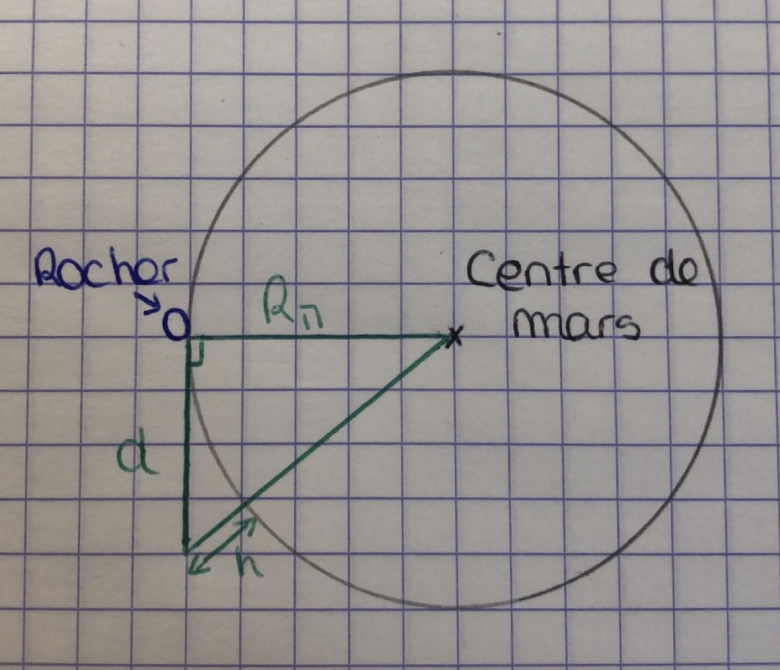 Rocher
Centre de
mars
O
R_M
d
h